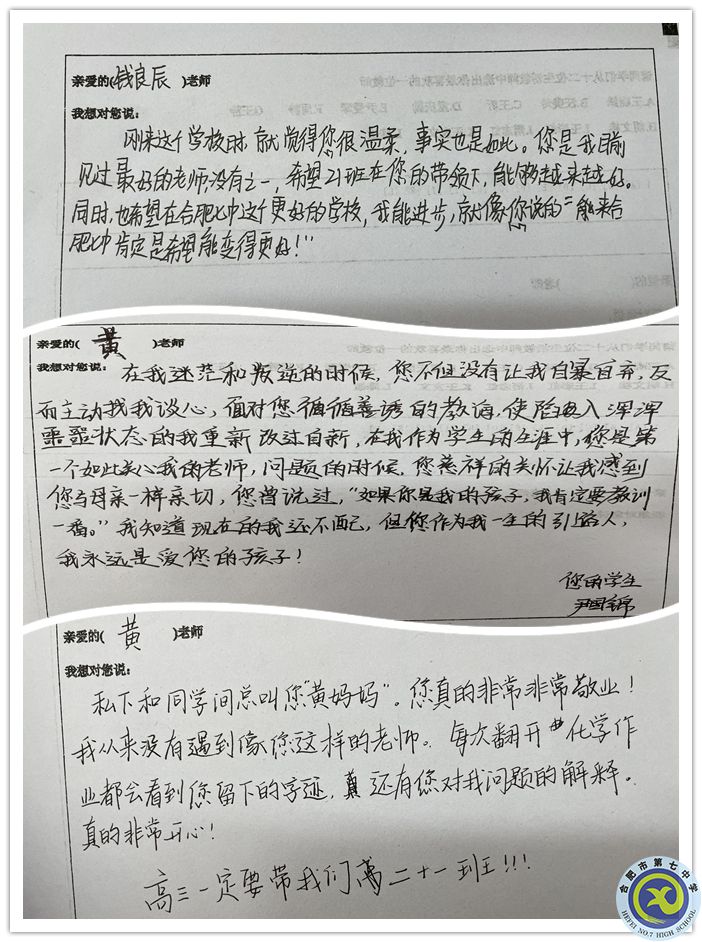 亲爱的(钱良辰 )老师
我想对您说：
刚来这个学校时，就觉得您很温柔，事实也是如此。您是我目前
见过最好的老师，没有之一，希望21班在您的带领下，能够越来越好。
同时，也希望在合肥七中这个更好的学校，我能进步，就像您说的"能来合
肥七中肯定是希望能变得更好！"
亲爱的( 黄 )老师
我想对您说：
在我迷茫和叛逆的时候，您不但没有让我自暴自弃，反
而主动找我谈心，面对您循循善诱的教诲，使陷入浑浑
噩噩状态的我重新改过自新，在我作为学生的生涯中，您是第
一个如此关心我的老师，问题的时候，您慈祥的关怀让我感到
您与母亲一样亲切，您曾说过，"如果你是我的孩子，我肯定要教训
一番。"我知道现在的我还不配，但您作为我一生的引路人，
我永远是爱您的孩子！
您的学生
亲爱的( 黄 )老师
我想对您说：
私下和同学间总叫您"黄妈妈"。您真的非常非常敬业！
我从来没有遇到像您这样的老师。每次翻开化学作
业都会看到您留下的字迹，还有您对我问题的解释。
真的非常开心！
高三一定要带我们高二十一班王!!!
合肥市第七中学
HEFEI NO.7 HIGH SCHOOL